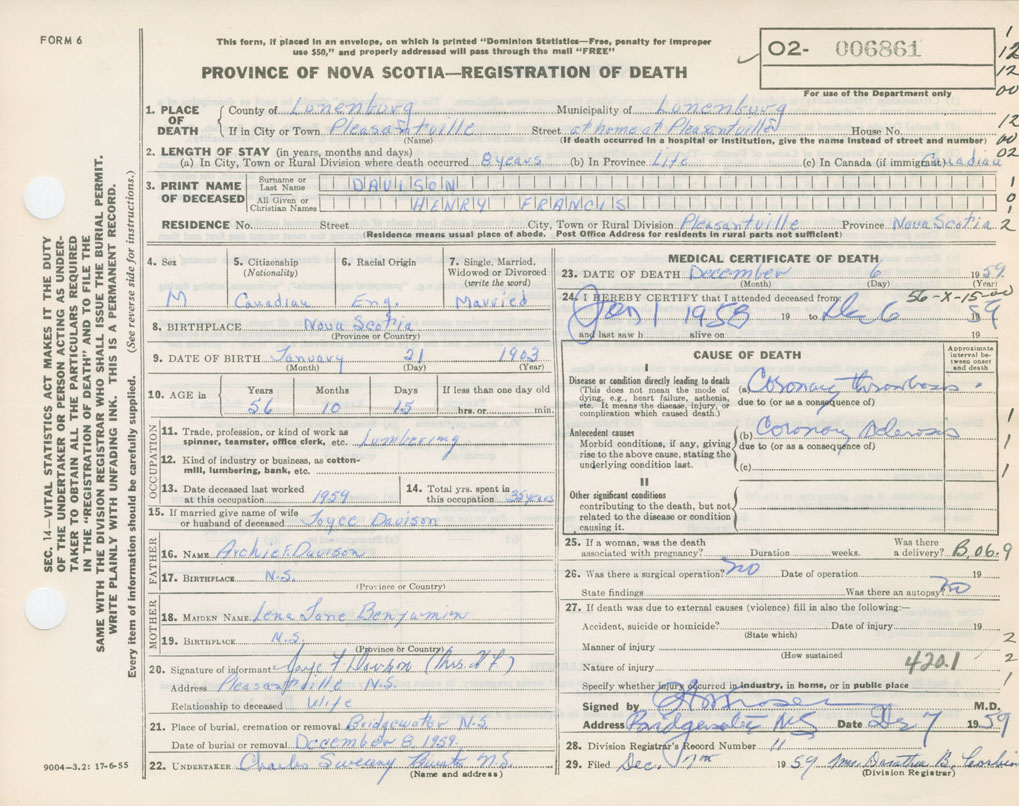 FORM 6
This form, if placed in an envelope, on which is printed "Dominion Statistics—Free, penalty for improper
use $50," and properly addressed will pass through the mail "FREE"
PROVINCE OF NOVA SCOTIA—REGISTRATION OF DEATH
02- 006861
For use of the Department only
1
12
12
00
12
00
02
1
0
1
2
SEC. 14—VITAL STATISTICS ACT MAKES IT THE DUTY
OF THE UNDERTAKER OR PERSON ACTING AS UNDER-
TAKER TO OBTAIN ALL THE PARTICULARS REQUIRED
IN THE "REGISTRATION OF DEATH" AND TO FILE THE
SAME WITH THE DIVISION REGISTRAR WHO SHALL ISSUE THE BURIAL PERMIT.
WRITE PLAINLY WITH UNFADING INK. THIS IS A PERMANENT RECORD.
Every item of information should be carefully supplied. (See reverse side for instructions.)
1. PLACE OF DEATH
County of Lunenburg Municipality of Lunenburg
If in City or Town Pleasantville Street at home at Pleasantville House No.
(Name) (If death occurred in a hospital or institution, give the name instead of street and number)
2. LENGTH OF STAY (in years, months and days)
(a) In City, Town or Rural Division where death occurred 8 years (b) In Province Life (c) In Canada (if immigrant) Canadian
3. PRINT NAME OF DECEASED
Surname or Last Name DAVISON
All Given or Christian Names HENRY FRANCIS
RESIDENCE No. Street City, Town or Rural Division Pleasantville Province Nova Scotia
(Residence means usual place of abode. Post Office Address for residents in rural parts not sufficient)
4. Sex 5. Citizenship (Nationality) 6. Racial Origin 7. Single, Married, Widowed or Divorced (write the word)
M Canadian Eng. Married
8. BIRTHPLACE Nova Scotia
(Province or Country)
9. DATE OF BIRTH January 21 1903
(Month) (Day) (Year)
10. AGE in Years Months Days If less than one day old
56 10 15 hrs. or min.
OCCUPATION
11. Trade, profession, or kind of work as
spinner, teamster, office clerk, etc. Lumbering
12. Kind of industry or business, as cotton-
mill, lumbering, bank, etc.
13. Date deceased last worked
at this occupation 1959
14. Total yrs. spent in
this occupation 35 years
15. If married give name of wife
or husband of deceased Joyce Davison
FATHER
16. NAME Archie F. Davison
17. BIRTHPLACE N.S.
(Province or Country)
MOTHER
18. MAIDEN NAME Lena Jane Benjamin
19. BIRTHPLACE N.S.
(Province or Country)
20. Signature of informant Joyce F. Davison (Mrs. H F)
Address Pleasantville N.S.
Relationship to deceased Wife
21. Place of burial, cremation or removal Bridgewater N.S.
Date of burial or removal December 8 1959.
22. UNDERTAKER Charles Sweeny N.S.
(Name and address)
9004—3.2: 17-6-55
MEDICAL CERTIFICATE OF DEATH
23. DATE OF DEATH December 6 1959.
(Month) (Day)
56-X-15-00
24. I HEREBY CERTIFY that I attended deceased from
Jan 1 1958 19 to Dec 6 1959
and last saw h alive on 19
CAUSE OF DEATH
Approximate interval between onset and death
I
Disease or condition directly leading to death
(This does not mean the mode of
dying, e.g., heart failure, asthenia,
etc. It means the disease, injury, or
complication which caused death.)
(a) Coronary thrombosis
due to (or as a consequence of)
Antecedent causes
Morbid conditions, if any, giving
rise to the above cause, stating the
underlying condition last.
(b) Coronary Sclerosis
due to (or as a consequence of)
(c)
1
1
1
II
Other significant conditions
contributing to the death, but not
related to the disease or condition
causing it.
25. If a woman, was the death
associated with pregnancy? Duration weeks. Was there
a delivery? B, 06.9
26. Was there a surgical operation? no Date of operation 19
State findings Was there an autopsy? no
27. If death was due to external causes (violence) fill in also the following:—
Accident, suicide or homicide? Date of injury 19
(State which)
Manner of injury 2
(How sustained
Nature of injury 420.1 / 2
Specify whether injury occurred in industry, in home, or in public place 1
Signed by M.D.
Address Bridgewater NS Date Dec 7 1959
28. Division Registrar's Record Number 11
29. Filed Dec. 7th 1959 Mrs. B.
(Division Registrar)